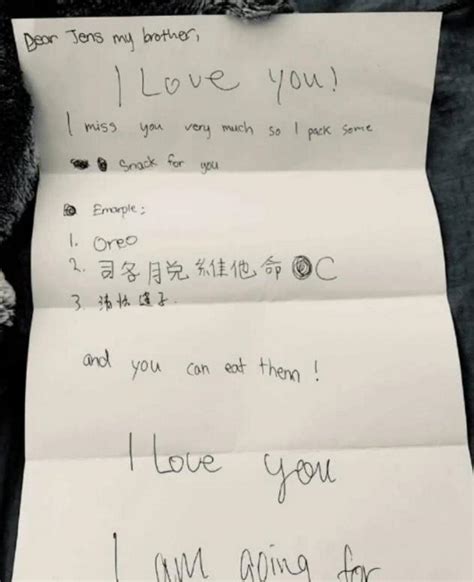 Dear Jens my brother,
I Love you!
I miss you very much so I pack some
Snack for you
Emarple:
1. Oreo
2. 司各月兑維他命 C
3. 子.
and you can eat them!
I Love you
I am going for